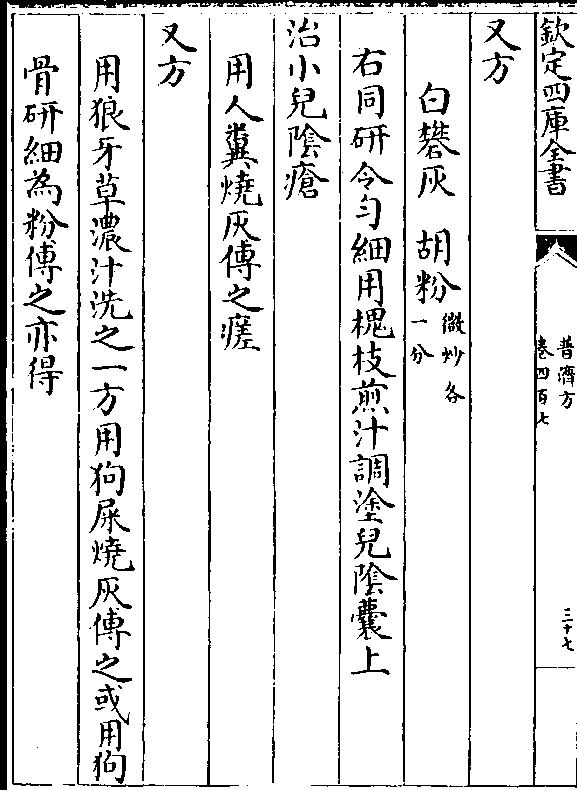 欽定四庫全書
普濟方
卷四百七
三十七
又方
白礬灰　胡粉微炒各一分
右同研令勻細用槐枝煎汁調塗兒陰囊上
治小兒陰瘡
用人糞燒灰傅之瘥
又方
用狼牙草濃汁洗之一方用狗屎燒灰傅之或用狗
骨研細為粉傅之亦得